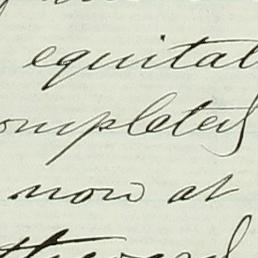 equital
ompleted
now at